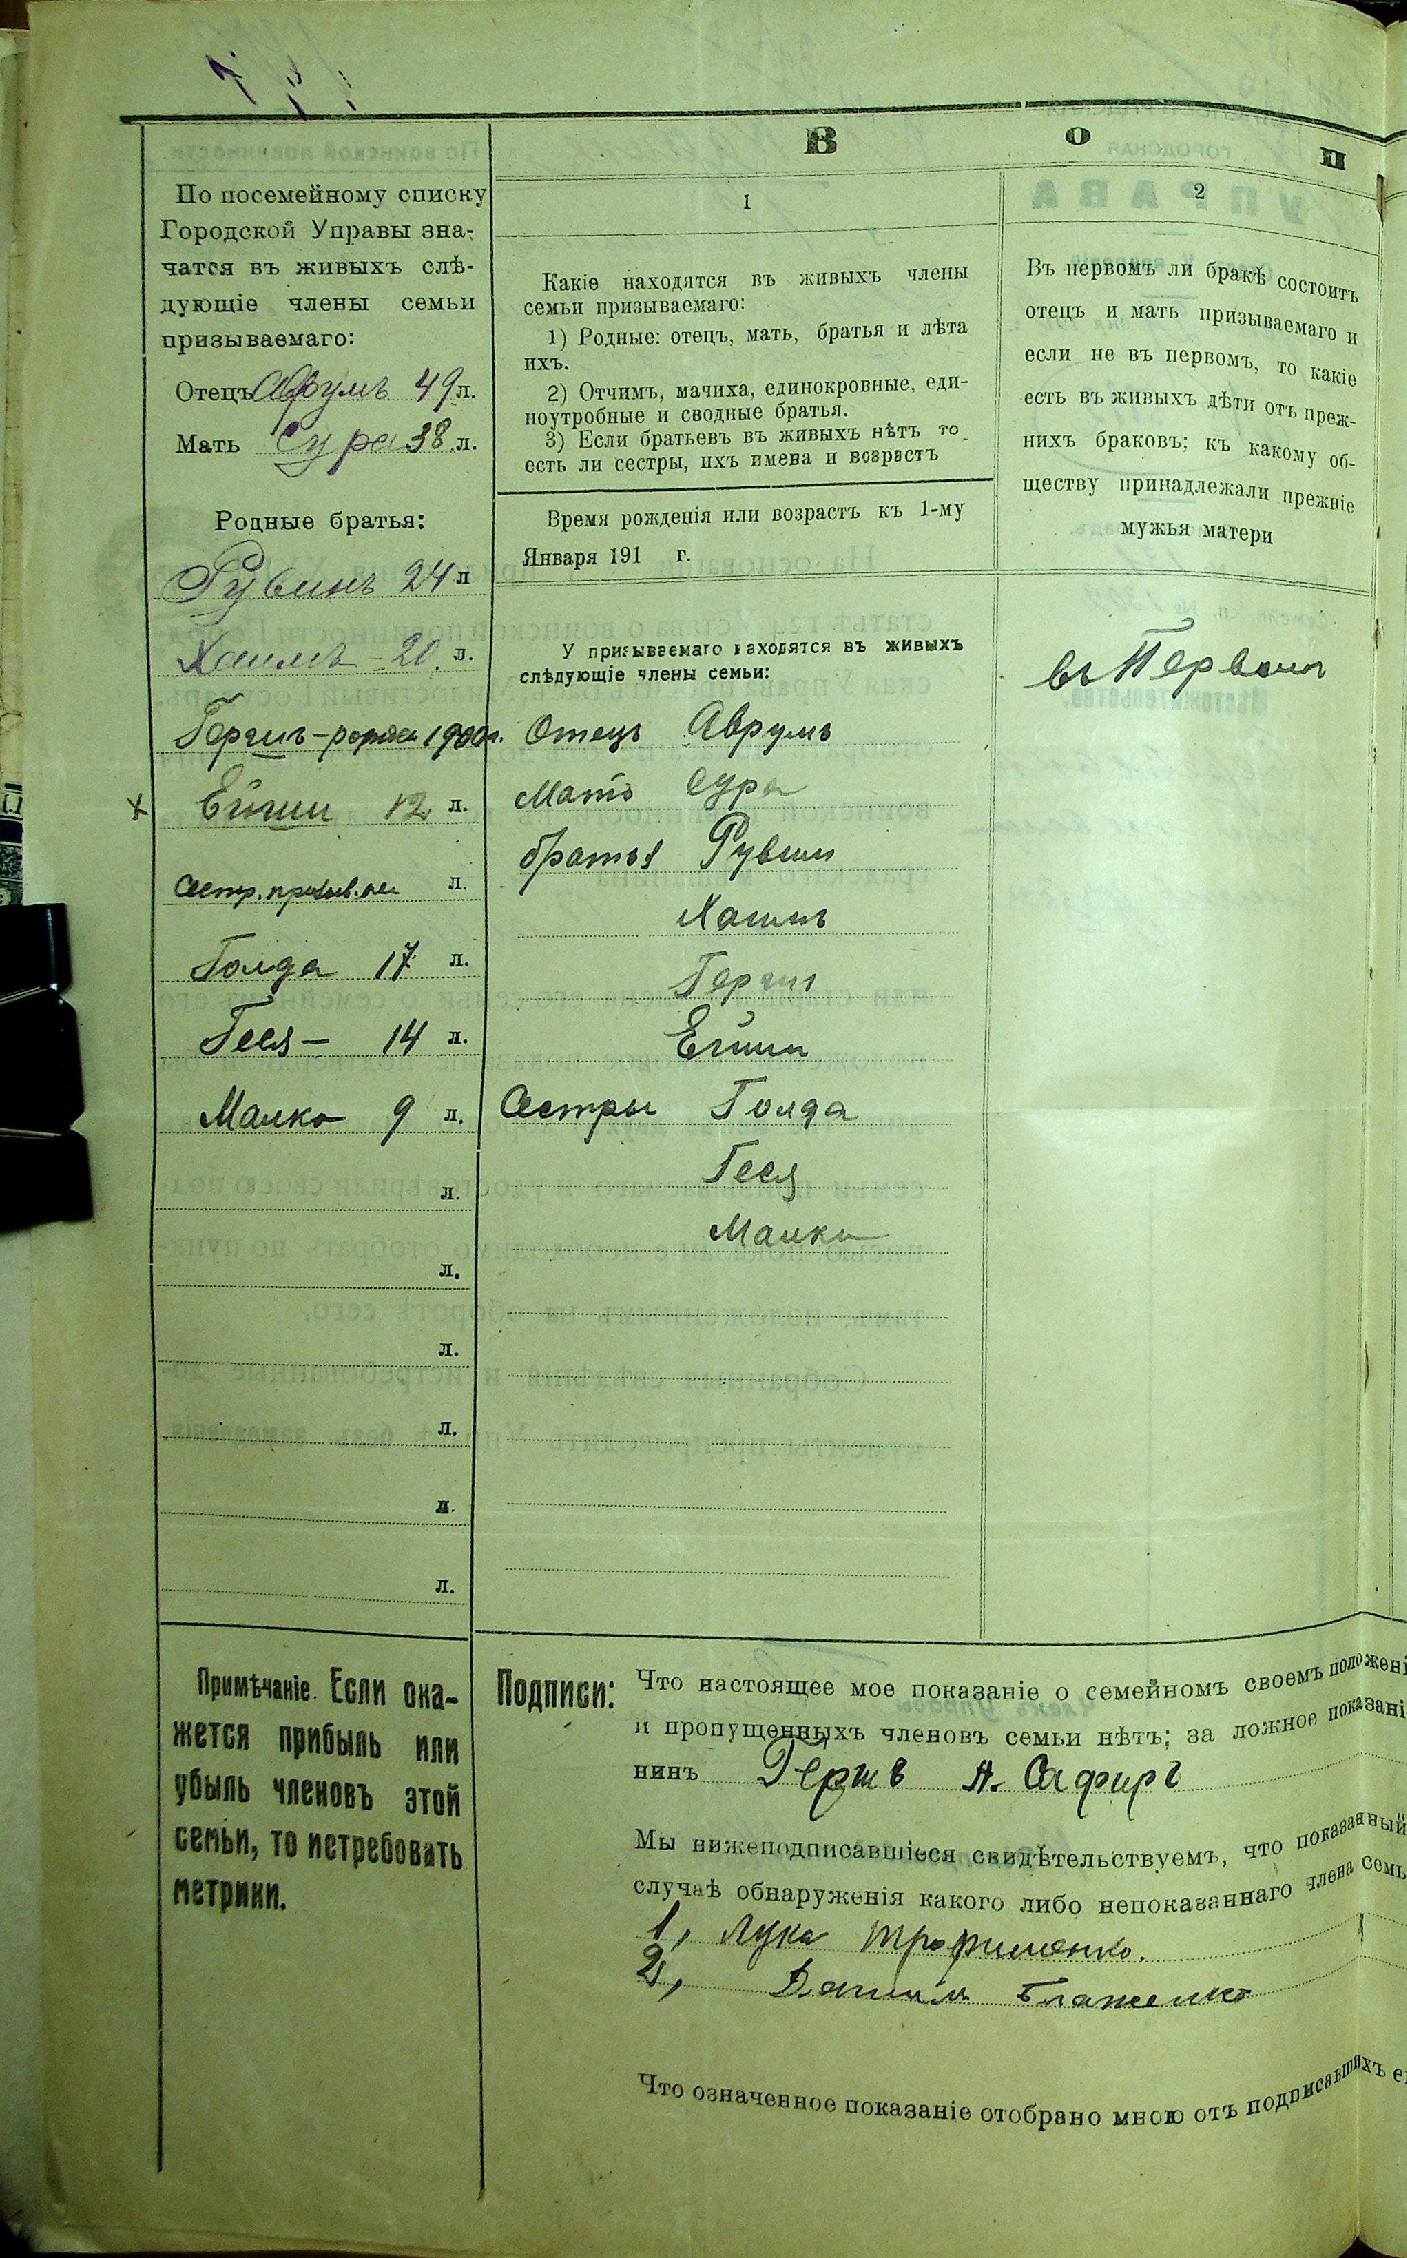 В о п
По посемейному списку
Городской Управы зна-
чатся въ живыхъ слѣ-
дующіе члены семьи
призываемаго:
Отецъ Аврумъ 49 л.
Мать Сура 38 л.
Родные братья:
Рувинъ 24 л
Хаимъ - 20 л.
Гершъ - родился 1900 г.
х Ейшии 12 л.
Сестр. призыв.
л.
Голда 17 л.
Геся - 14 л.
Малка 9 л.
л.
л.
л.
л.
л.
л.
1
Какіе находятся въ живыхъ члены
семьи призываемаго:
1) Родные: отецъ, мать, братья и лѣта
ихъ.
2) Отчимъ, мачиха, единокровные, еди-
ноутробные и сводные братья.
3) Если братьевъ въ живыхъ нѣтъ то
есть ли сестры, ихъ имена и возрастъ
Время рожденія или возрастъ къ 1-му
Января 191 г.
У призываемаго находятся въ живыхъ
слѣдующіе члены семьи:
Отецъ Аврумъ
Мать Сура
братья Рувин
Хаимъ
Гершъ
Сестры Голда
Геся
Малка
2
Въ первомъ ли бракѣ состоитъ
отецъ и мать призываемаго и
если не въ первомъ, то какіе
есть въ живыхъ дѣти отъ преж-
нихъ браковъ; къ какому об-
ществу принадлежали прежніе
мужья матери
въ Первом
Примѣчаніе. Если ока-
жется прибыль или
убыль членовъ этой
семьи, то истребовать
метрики.
Подписи: Что настоящее мое показаніе о семейномъ своемъ положені
и пропущенныхъ членовъ семьи нѣтъ; за ложное показані
нинъ Герш А. Сафиръ
Мы нижеподписавшіеся свидѣтельствуемъ, что показанный
случаѣ обнаруженія какого либо непоказаннаго члена семь
1, Лука Трофименко.
2, Блаженко
Что означенное показаніе отобрано мною отъ подписавшихъ е